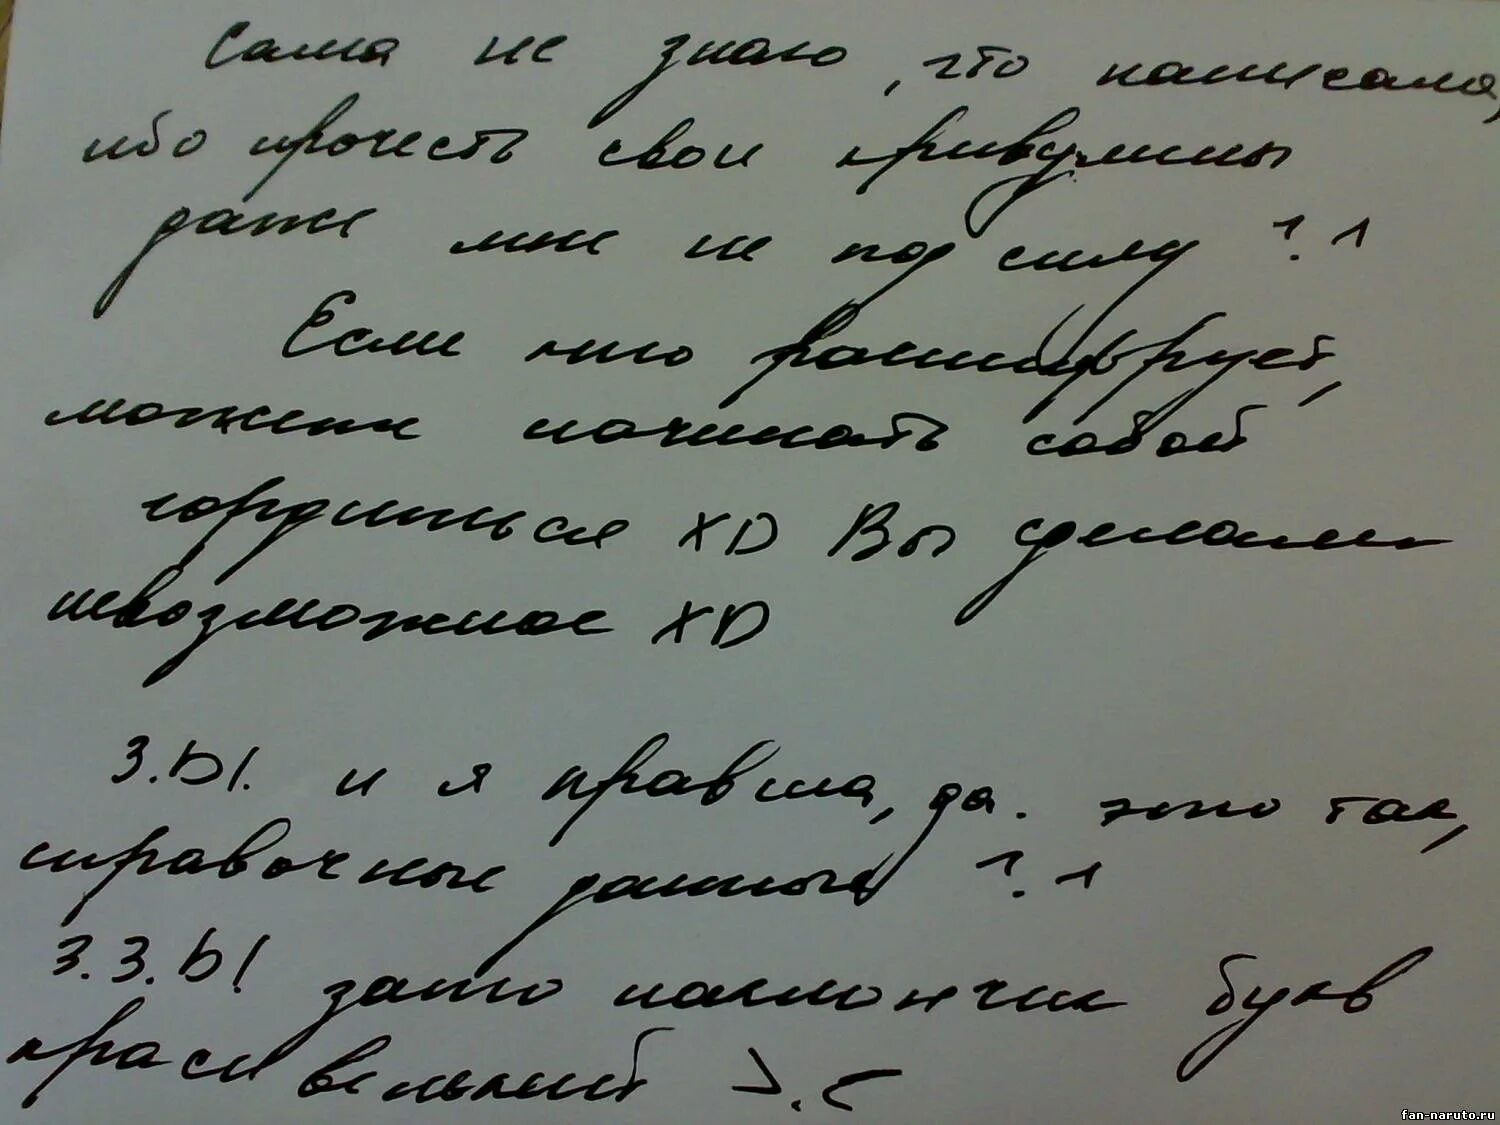 Сама не знаю, что написала,
ибо прочесть свои кривулины
даже мне не под силу 1.1
Если кто расшифрует,
можете начинать собой
гордиться XD Вы сделали
невозможное XD
З.Ы. и я правша, да. это так,
справочные данные 1.1
З.З.Ы зато наклончик букв
красивенький >.<
fan-naruto.ru